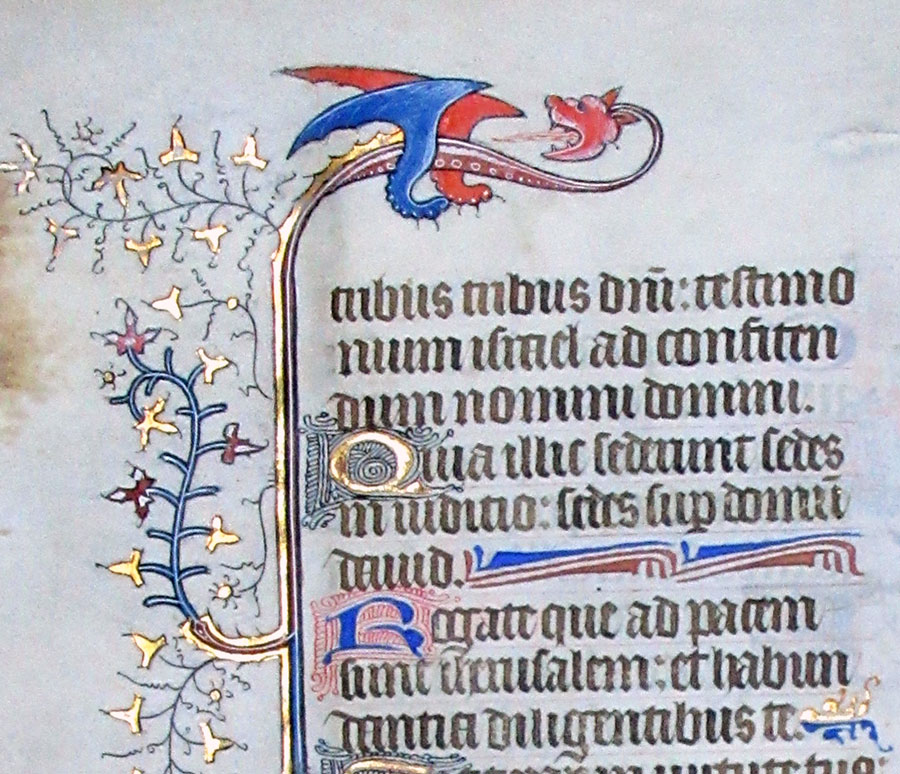 tribus tribus dn̄i: testimo
nium israel ad confiten
dum nomini domini.
Quia illic sederunt sedes
in iudicio: sedes sup domū
dauid.
Rogate que ad pacem
sunt iherusalem: et habun
dantia diligentibus te.
in uirtute tua: